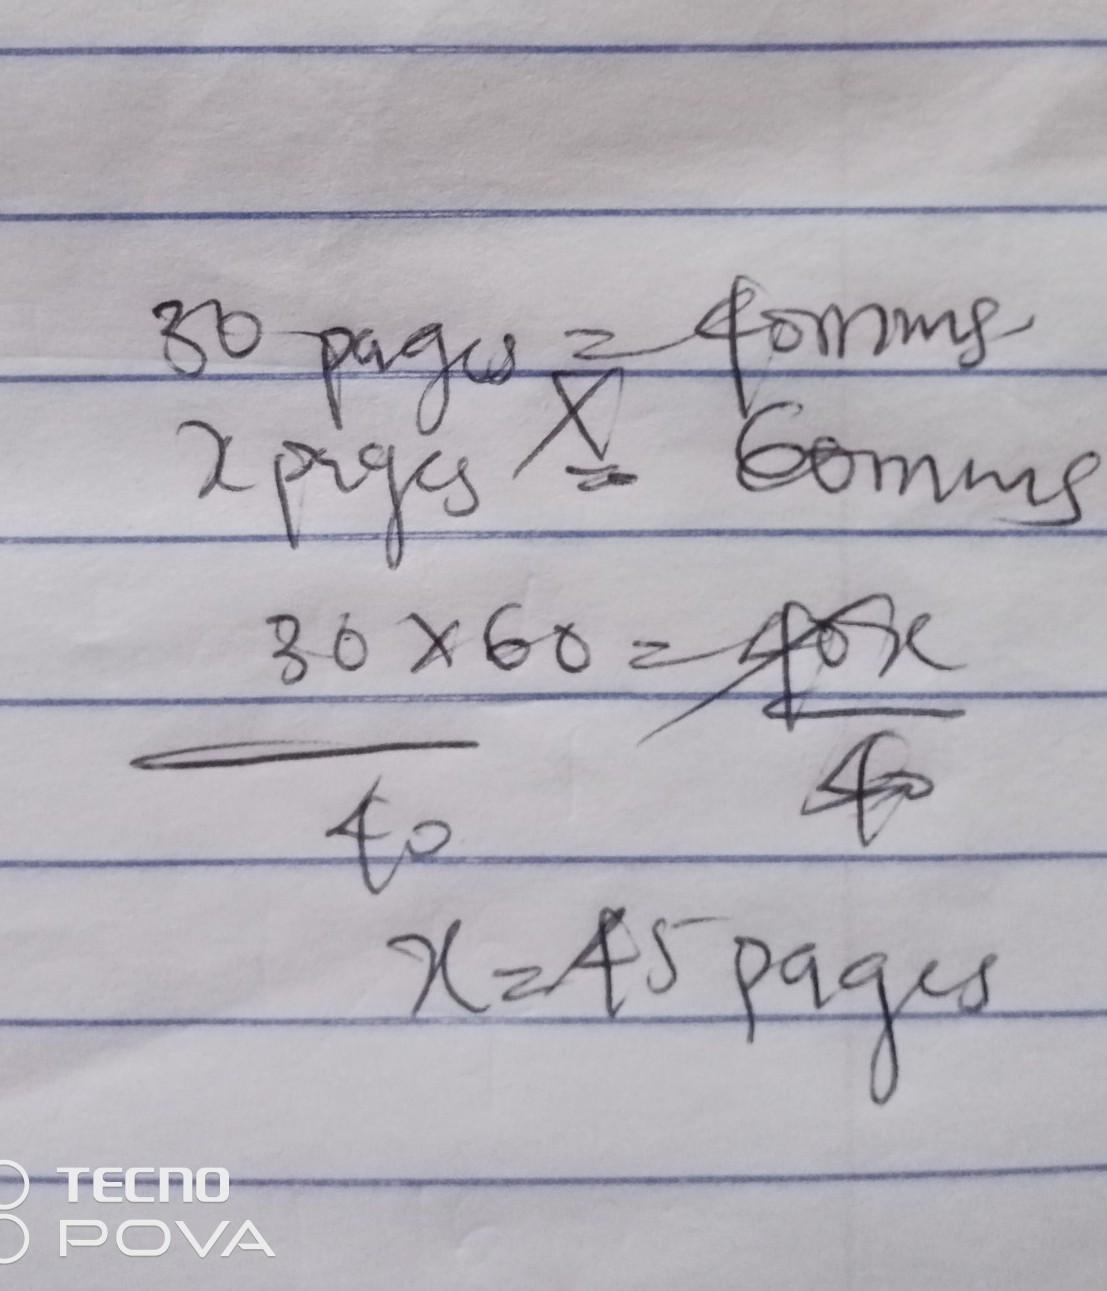 30 pages = 40mins
x pages = 60mins
30 × 60 = 40x
40 40
x = 45 pages
TECNO
POVA